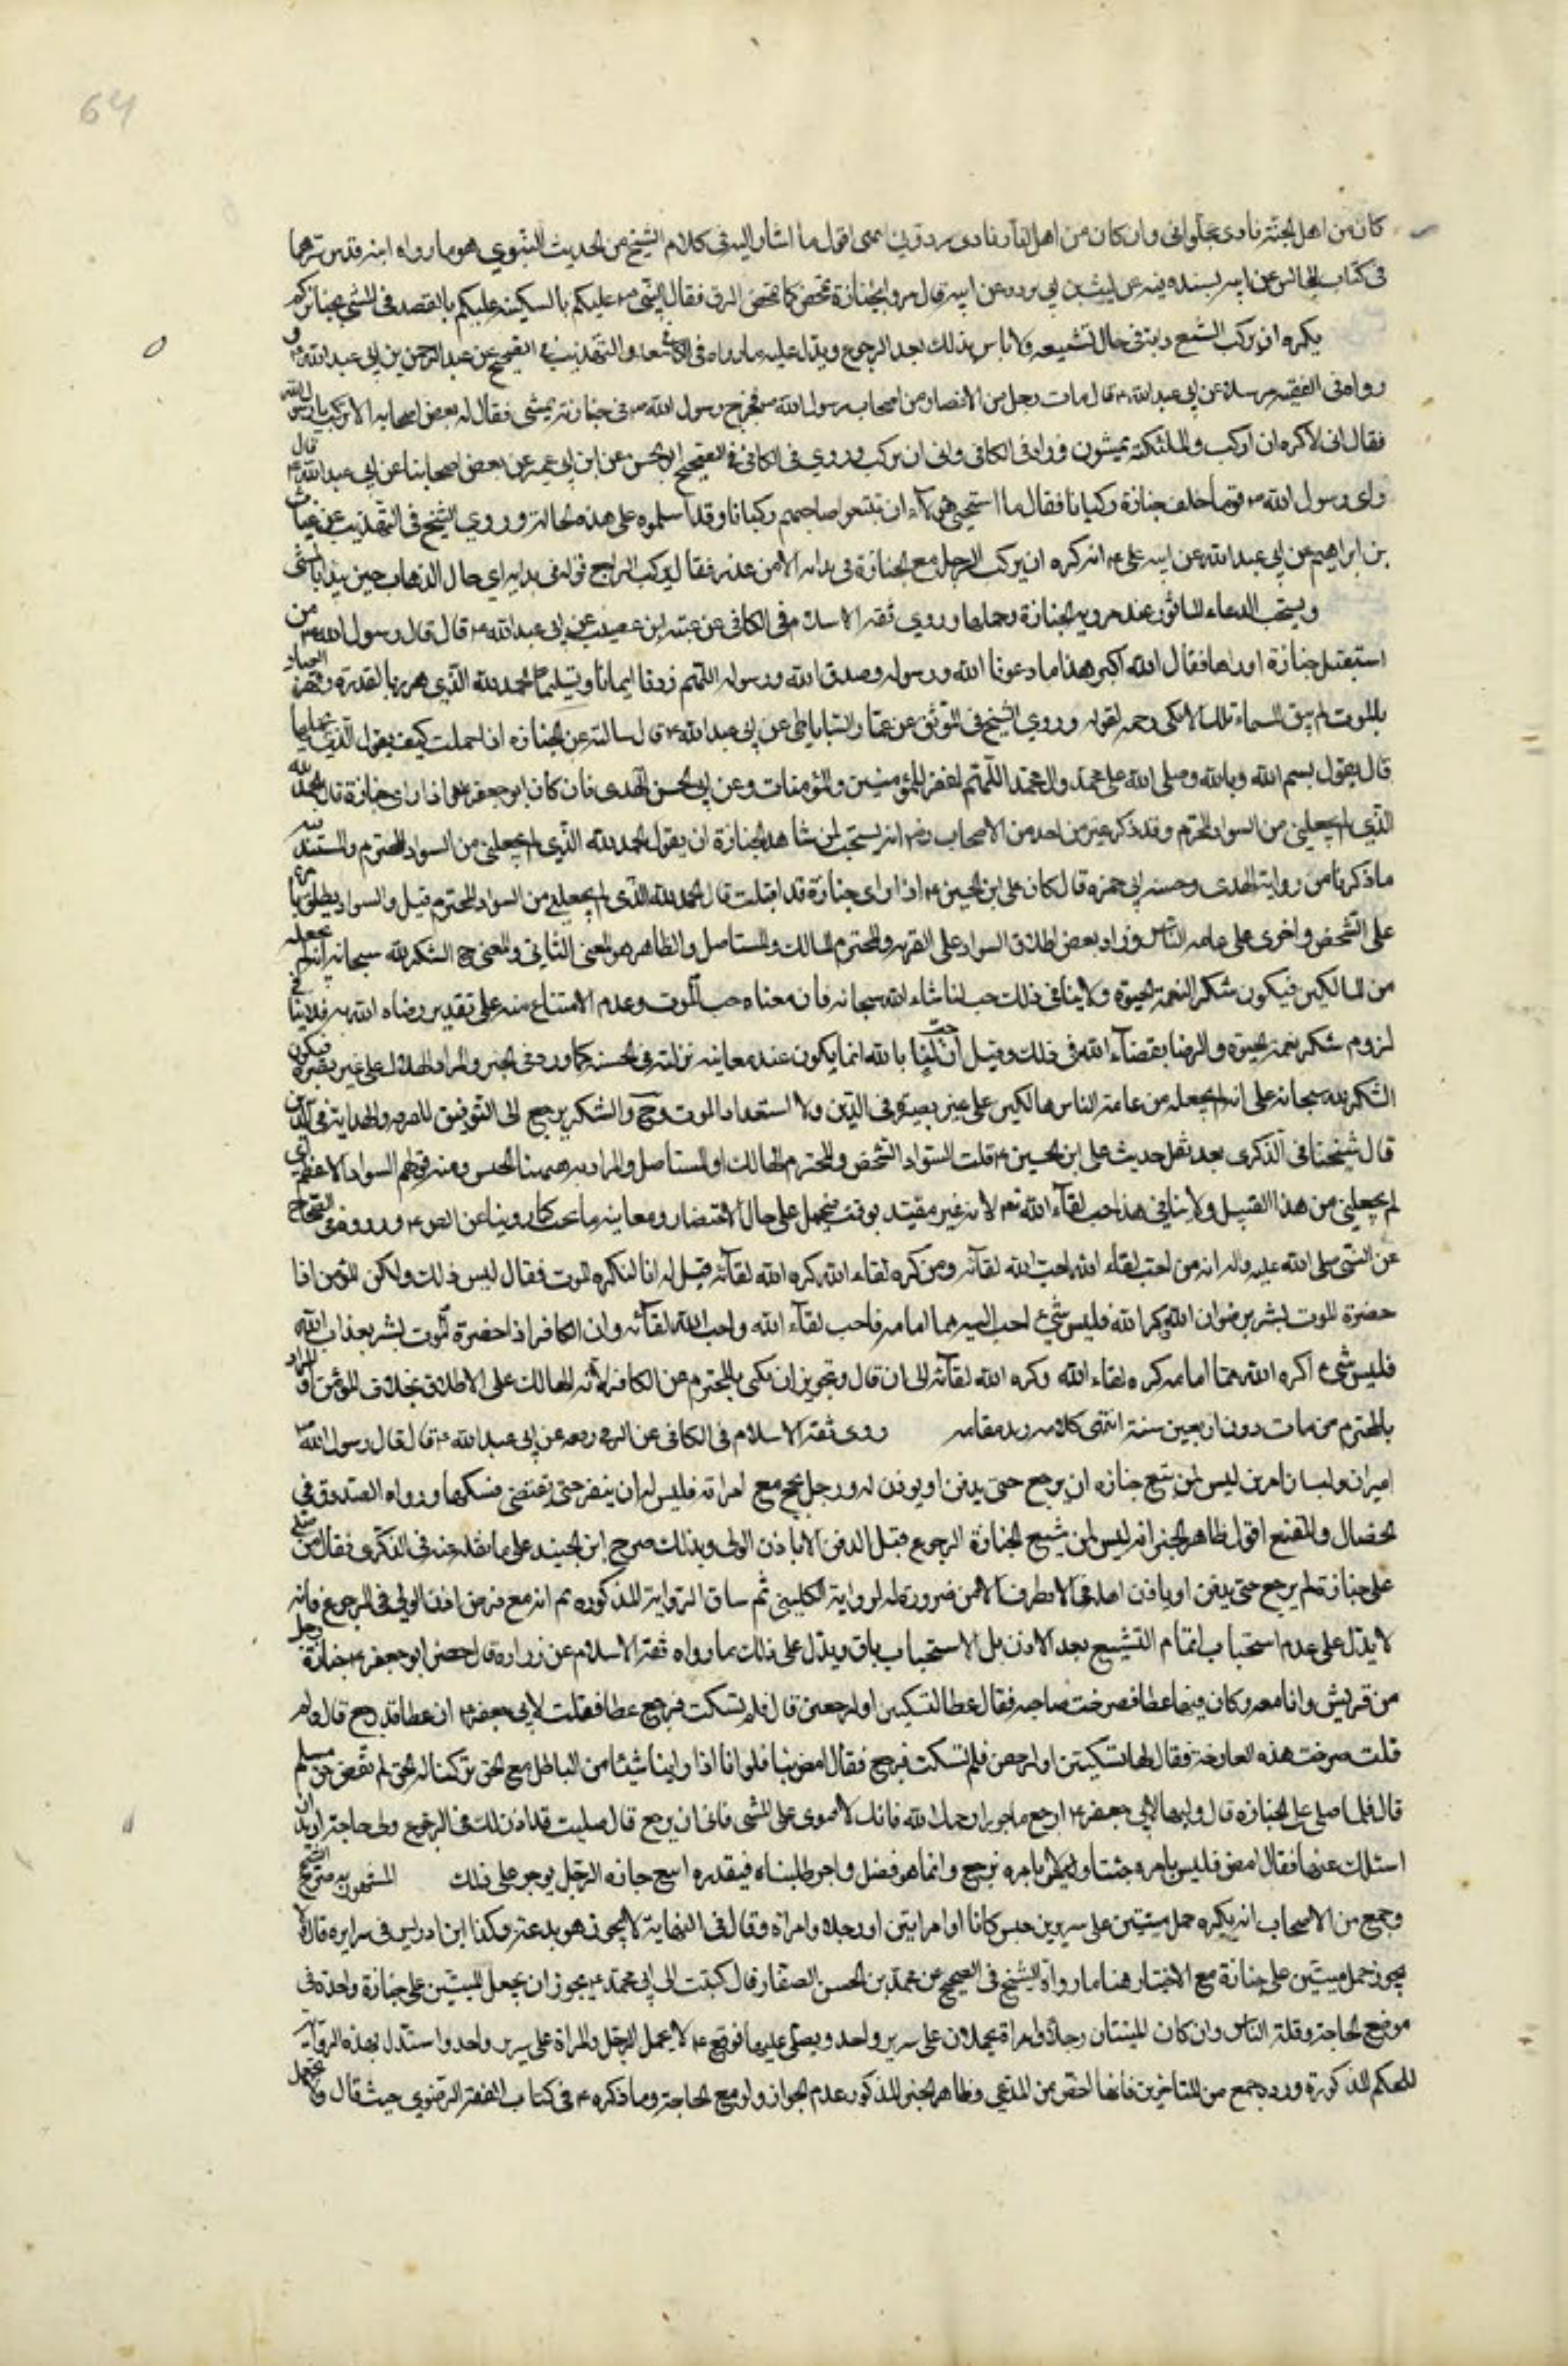 64
كان من اهل الجنة نادى عجلوانى وان كان من اهل النار نادى ردونى انتهى اقول ما اشار اليه فى كلام الشيخ من الحديث النبوي هو ما رواه ابنه قدس سرهما
فى كتاب المجالس عن ابيه بسنده فيه عن ليث بن ابى برده عن ابيه قال مروا بجنازة تمخض كما تمخض الزق فقال النبى ص عليكم بالسكينه عليكم بالقصد فى المشى بجنائزكم
يكره ان يركب المشيع دابته فى حال تشييعه ولا باس بذلك بعد الرجوع ويدل عليه ما رواه فى الكافى والتهذيب فى الصحيح عن عبد الرحمن بن ابى عبد الله ع و
رواه فى الفقيه مرسلا عن ابى عبد الله ع قال مات رجل من الانصار من اصحاب رسول الله ص فخرج رسول الله ص فى جنازته يمشى فقال له بعض اصحابه الا تركب يا رسول الله
فقال انى لاكره ان اركب والملئكة يمشون وزاد فى الكافى وابى ان يركب وروي فى الكافى فى الصحيح او الحسن عن ابن ابى عمير عن بعض اصحابنا عن ابى عبد الله ع قال
راى رسول الله ص قوما خلف جنازة ركبانا فقال ما استحيى هؤلآء ان يتبعوا صاحبهم ركبانا وقد اسلموه على هذه الحالة وروي الشيخ فى التهذيب عن غياث
بن ابراهيم عن ابى عبد الله عن ابيه عن على ع انه كره ان يركب الرجل مع الجنازة فى بدايه الا من عذر فقال يركب اذا رجع قوله فى بدايه اي حال الذهاب حين يبدا بالمشى
ويستحب الدعاء بالماثور عند رويه الجنازة وحملها وروي ثقه الاسلام فى الكافى عن عنبسه ابن مصعب عن ابى عبد الله ع قال قال رسول الله ص من
استقبل جنازة او راها فقال الله اكبر هذا ما وعدنا الله ورسوله وصدق الله ورسوله اللهم زدنا ايمانا وتسليما الحمد لله الذي تعزز بالقدرة وقهر العباد
بالموت لم يبق فى السماء ملك الا بكى رحمه لقوله وروي الشيخ فى الموثق عن عمار الساباطى عن ابى عبد الله ع قال سالته عن الجنازه اذا حملت كيف يقول الذى يحملها
قال يقول بسم الله وبالله وصلى الله على محمد وال محمد اللهم اغفر للمؤمنين والمؤمنات وعن ابى الحسن النهدى قال كان ابو جعفر ع اذا راى جنازة قال الحمد لله
الذي لم يجعلنى من السواد المخترم وقد ذكر غير من احد من الاصحاب رض انه يستحب لمن شاهد الجنازة ان يقول الحمد لله الذي لم يجعلنى من السواد المخترم والمستند فيه
ما ذكرنا من رواية النهدى وحسنه ابى حمزه قال كان على ابن الحسين ع اذا راى جنازة قد اقبلت قال الحمد لله الذى لم يجعلنى من السواد المخترم قيل والسواد يطلق تارة
على الشخص واخرى على عامه الناس وزاد بعض اطلاق السواد على القريه والمخترم الهالك والمستاصل والظاهر هو المعنى الثانى والمعنى ح الشكر لله سبحانه انه لم يجعله
من الهالكين فيكون شكر النعمة الحيوة ولا ينافى ذلك حب لقاء الله سبحانه فان معناه حب الموت وعدم الامتناع منه على تقدير رضاه الله به فلا ينافى
لزوم شكر نعمه الحيوة والرضا بقضآء الله فى ذلك وقيل ان حب لقاء الله انما يكون عند معاينه منزلته فى الجنه كما ورد فى الخبر والمراد الهلاك على غير بصيرة فيكون
الشكر لله سبحانه على انه لم يجعله من عامة الناس هالكين على غير بصيرة فى الدين ولا استعداد للموت وح والشكر يرجع الى التوفيق للمعرفه والهدايه فى الدين
قال شيخنا فى الذكرى بعد نقل حديث على ابن الحسين ع قلت السواد الشخص والمخترم الهالك او المستاصل والمراد به هيهنا الجنس ومنه قولهم السواد الاعظم اى
لم يجعلنى من هذا القبيل ولا ينافى هذا حب لقآء الله تع لانه غير مقيد بوقت فيحمل على حال الاحتضار ومعاينه ما يحب كما روينا عن الص ع وروه فى الصحاح
عن النبى صلى الله عليه واله انه من احب لقاء الله احب الله لقآئه ومن كره لقاء الله كره الله لقآئه فقيل له انا لنكره الموت فقال ليس ذلك ولكن المؤمن اذا
حضرة الموت بشر برضوان الله وكرامته فليس شئ احب اليه مما امامه فاحب لقآء الله واحب الله لقآئه وان الكافر اذا حضرة الموت بشر بعذاب الله
فليس شئ اكره اليه مما امامه كره لقاء الله وكره الله لقآئه الى ان قال وتجويز ان يكنى بالمخترم عن الكافر لانه الهالك على الاطلاق بخلاف المؤمن او المراد
بالمخترم من مات دون اربعين سنة انتهى كلامه زيد مقامه روى ثقه الاسلام فى الكافى عن البرقى رفعه عن ابى عبد الله ع قال قال رسول الله ص
اميران وليسا بامرين ليس لمن تبع جنازه ان يرجع حتى يدفن او يوذن له ورجل يحج مع امراته فليس له ان ينفر حتى تقضى نسكها ورواه الصدوق فى
الخصال والمقنع اقول ظاهر الخبر انه ليس لمن شيع الجنازة الرجوع قبل الدفن الا باذن الولى وبذلك صرح ابن الجنيد على ما نقله عنه فى الذكرى فقال من صلى
على جنازة لم يرجع حتى يدفن او ياذن اهله فى الانصراف الا من ضروره لرواية الكلينى ثم ساق الرواية المذكوره ثم انه مع فرض اذن الولى فى الرجوع فانه
لا يدل على عدم استحباب اتمام التشييع بعد الاذن بل الاستحباب باق ويدل على ذلك ما رواه ثقه الاسلام عن زراره قال حضر ابو جعفر ع جنازة رجل
من قريش وانا معه وكان فيها عطا فصرخت صارخه فقال عطا لتسكتن او لنرجعن قال فلم تسكت فرجع عطا فقلت لابى جعفر ع ان عطا قد رجع قال ولم
قلت صرخت هذه الصارخة فقال لها لتسكتن او لنرجعن فلم تسكت فرجع فقال امض بنا فلو انا اذا راينا شيئا من الباطل مع الحق تركنا له الحق لم نقض حق مسلم
قال فلما صلى على الجنازه قال وليها لابى جعفر ع ارجع ماجورا رحمك الله فانك لا تقوى على المشى فابى ان يرجع قال فقلت قد اذن لك فى الرجوع ولى حاجة اريد ان
اسئلك عنها فقال امض فليس باذنه جئنا ولا باذنه نرجع وانما هو فضل واجر طلبناه فبقدر ما يتبع الجنازه الرجل يوجر على ذلك المشهور وبه صرح الشيخ
وجمع من الاصحاب انه يكره حمل ميتين على سرير رجلين كانا او امراتين او رجلا وامراة وقال فى النهاية لا يجوز وهو بدعة وكذا ابن ادريس فى سرايره قال لا
يجوز حمل ميتين على جنازة مع الاختيار هنا ما رواه الشيخ فى الصحيح عن محمد بن الحسن الصفار قال كتبت الى ابى محمد ع يجوز ان يجعل الميتين على جنازة واحدة فى
موضع الحاجة وقلة الناس وان كان الميتان رجلا وامراة يحملان على سرير واحد ويصلى عليهما فوقع ع لا يحمل الرجل والمراة على سرير واحد واستدل بهذه الرواية
للحكم المذكورة ورده جمع من المتاخرين فانها اخص من المدعى وظاهر الخبر المذكور عدم الجواز ولو مع الحاجة وما ذكره ع فى كتاب الفقه الرضوي حيث قال ولا تحمل